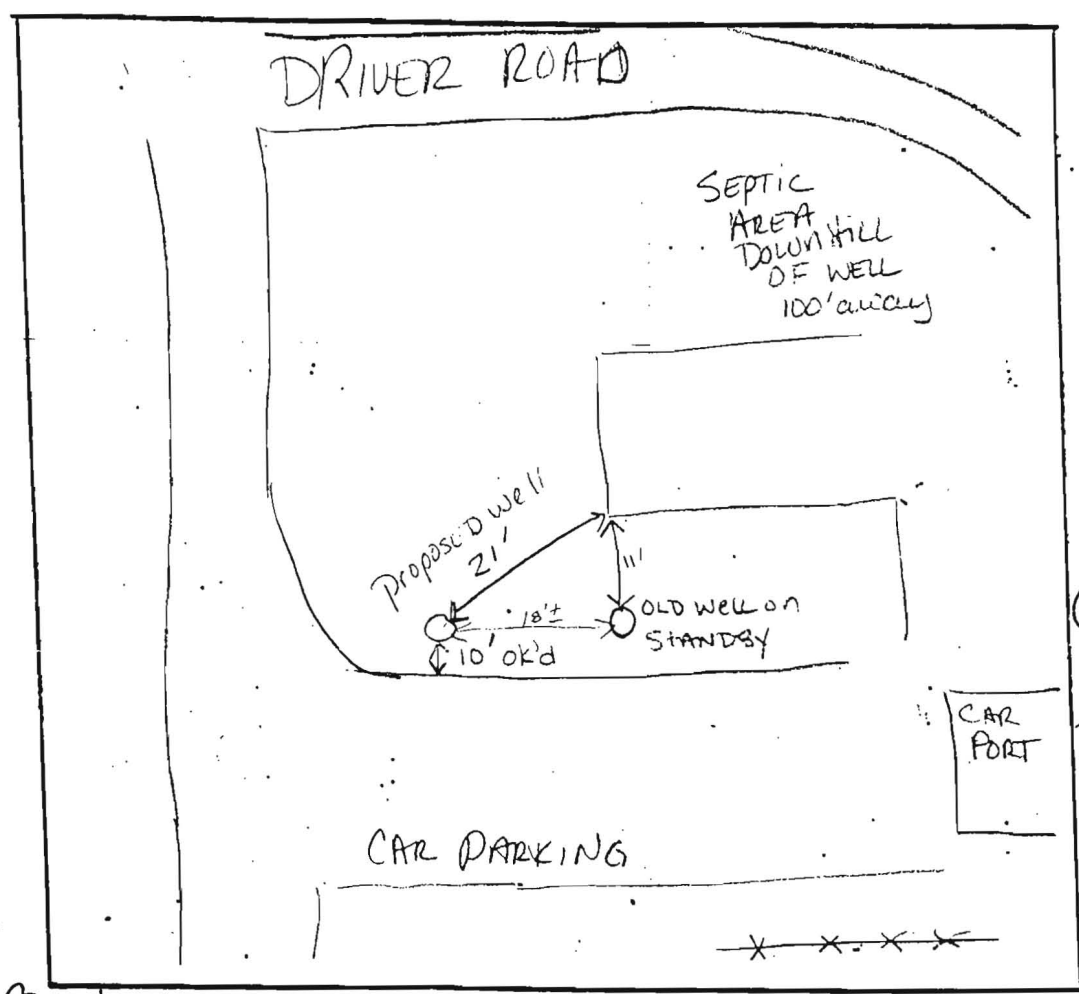 DRIVER ROAD
SEPTIC
AREA
DOWNHILL
OF WELL
100' away
PROPOSED well
21'
11'
18'±
OLD WELL ON
STANDBY
10' OK'd
CAR
PORT
CAR PARKING